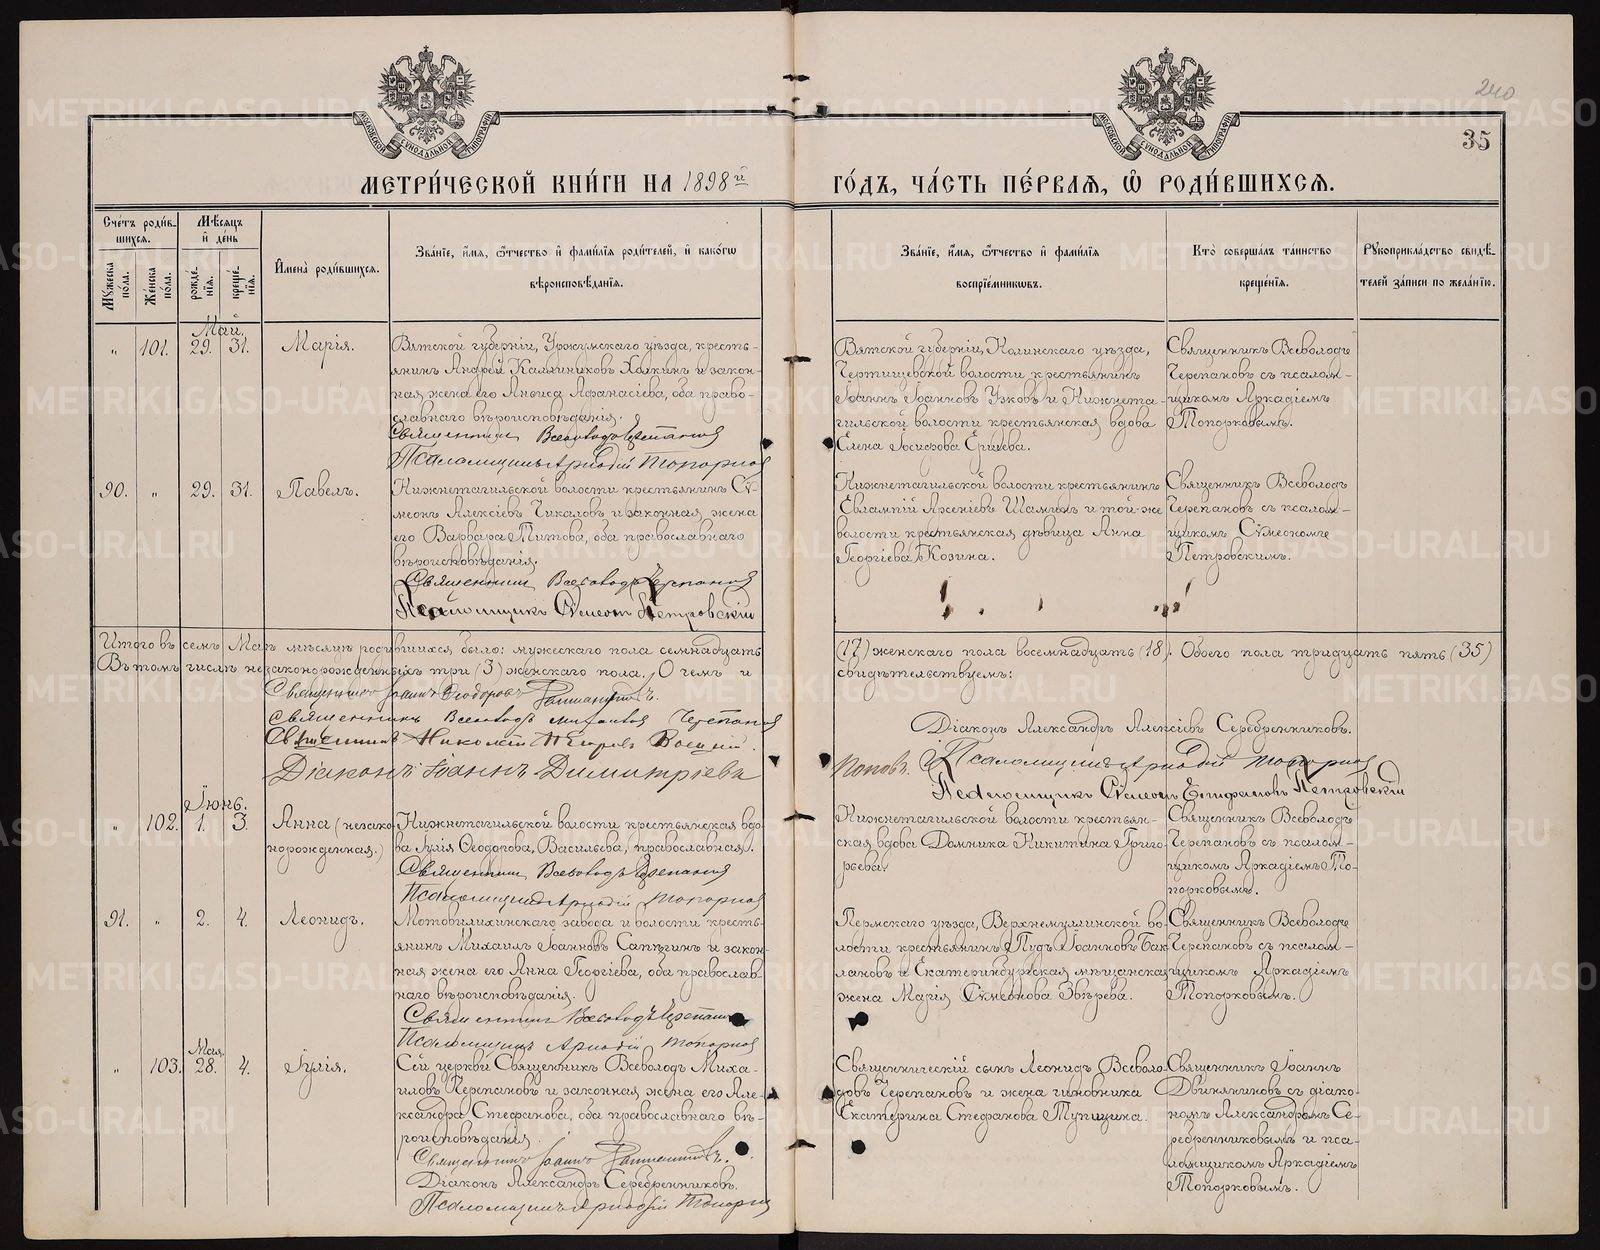 240
35
МОСКОВСКОЙ СѴНОДАЛЬНОЙ ТИПОГРАФІИ
МОСКОВСКОЙ СѴНОДАЛЬНОЙ ТИПОГРАФІИ
МЕТРИ́ЧЕСКОЙ КНИ́ГИ НА 1898й
ГО́ДЪ, ЧА́СТЬ ПЕ́РВАѦ, Ѡ҆ РОДИ́ВШИХСѦ.
Сче́тъ роди́в-
шихсѧ.
Мꙋ́жеска по́ла.
Же́нска по́ла.
Мѣ́сѧцъ
и҆ де́нь
рожде́-
нїѧ.
креще́-
нїѧ.
И҆мена̀ роди́вшихсѧ.
Зва́нїе, и҆́мѧ, ѻ҆́тчество и҆ фами́лїѧ роди́телей, и҆ како́гѡ
вѣроисповѣ́данїѧ.
Зва́нїе, и҆́мѧ, ѻ҆́тчество и҆ фами́лїѧ
воспрїе́мникѡвъ.
Кто̀ соверша́лъ та́инство
креще́нїѧ.
Рꙋкоприкла́дство свидѣ́-
телей за́писи по жела́нїю.
Май.
" 101. 29. 31. Марія.
Вятской губерніи, Уржумскаго уѣзда, кресть-
янинъ Андрей Каллиниковъ Халкинъ и закон-
ная жена его Анѳиса Аѳанасіева, оба право-
славнаго вѣроисповѣданія.
Священникъ Всеволодъ Черепановъ
Псаломщикъ Аркадій Топорковъ
Вятской губерніи, Нолинскаго уѣзда,
Чертищевской волости крестьянинъ
Іоаннъ Іоанновъ Ужовъ и Нижнета-
гильской волости крестьянская вдова
Елена Іосифова Ершева.
Священникъ Всеволодъ
Черепановъ съ псалом-
щикомъ Аркадіемъ
Топорковымъ.
90. " 29. 31. Павелъ.
Нижнетагильской волости крестьянинъ Сѵ-
меонъ Алексіевъ Чикаловъ и законная жена
его Варвара Титова, оба православнаго
вѣроисповѣданія.
Священникъ Всеволодъ Черепановъ
Псаломщикъ Сѵмеонъ Петровскій
Нижнетагильской волости крестьянинъ
Евлампій Арсеніевъ Шаминъ и той-же
волости крестьянская дѣвица Анна
Георгіева Козина.
Священникъ Всеволодъ
Черепановъ съ псалом-
щикомъ Сѵмеономъ
Петровскимъ.
Итого въ семъ Маѣ мѣсяцѣ родившихся было: мужескаго пола семнадцать
(17) женскаго пола восемнадцать (18). Обоего пола тридцать пять (35)
Въ томъ числѣ незаконорожденныхъ три (3) женскаго пола. О чемъ и
свидѣтельствуемъ:
Священникъ Іоаннъ Ѳеодоровъ
Священникъ Всеволодъ Михаиловъ Черепановъ
Священникъ Николай Петровъ
Діаконъ Іоаннъ Димитріевъ
Поповъ.
Діаконъ Александръ Алексіевъ Серебренниковъ.
Псаломщикъ Аркадій Топорковъ
Псаломщикъ Сѵмеонъ Епифановъ Петровскій
Іюнь.
" 102. 1. 3. Анна (незако-
норожденная.)
Нижнетагильской волости крестьянская вдо-
ва Іулія Ѳеодорова, Васильева, православная.
Священникъ Всеволодъ Черепановъ
Псаломщикъ Аркадій Топорковъ
Нижнетагильской волости крестьян-
ская вдова Домника Никитина Григо-
рьева.
Священникъ Всеволодъ
Черепановъ съ псалом-
щикомъ Аркадіемъ То-
порковымъ.
91. " 2. 4. Леонидъ.
Мотовилихинскаго завода и волости кресть-
янинъ Михаилъ Іоанновъ Сапѣгинъ и закон-
ная жена его Анна Георгіева, оба православ-
наго вѣроисповѣданія.
Священникъ Всеволодъ Черепановъ
Псаломщикъ Аркадій Топорковъ
Пермскаго уѣзда, Верхнемуллинской во-
лости крестьянинъ Пудъ Іоанновъ Бак-
лановъ и Екатеринбургская мѣщанская
жена Марія Сѵмеонова Звѣрева.
Священникъ Всеволодъ
Черепановъ съ псалом-
щикомъ Аркадіемъ
Топорковымъ.
Мая.
" 103. 28. 4. Іулія.
Сей церкви Священникъ Всеволодъ Миха-
иловъ Черепановъ и законная жена его Але-
ксандра Стефанова, оба православнаго вѣ-
роисповѣданія.
Священникъ Іоаннъ
Діаконъ Александръ Серебренниковъ.
Псаломщикъ Аркадій Топорковъ
Священническій сынъ Леонидъ Всеволо-
довъ Черепановъ и жена чиновника
Екатерина Стефанова Тупицина.
Священникъ Іоаннъ
Двиняниновъ съ діако-
номъ Александромъ Се-
ребренниковымъ и пса-
ломщикомъ Аркадіемъ
Топорковымъ.
METRIKI.GASO-URAL.RU